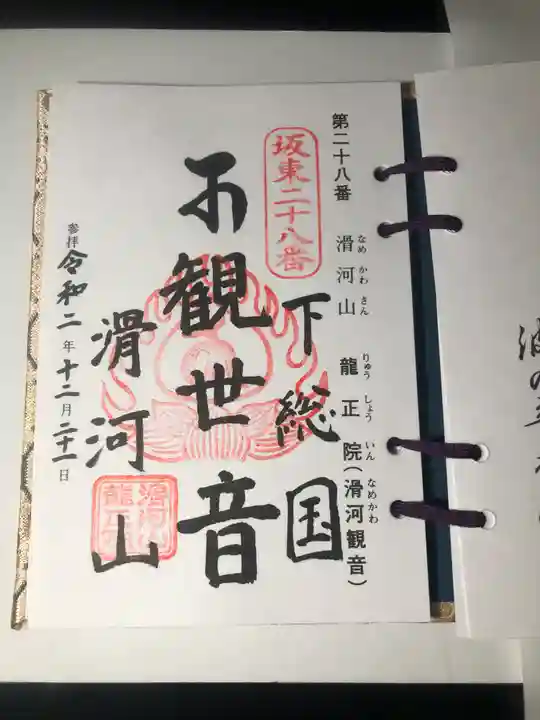 第二十八番 滑河山 龍正院(滑河観音)
なめ かわ さん りゅう しょう いん なめかわ
坂東二十八番
下総国
観世音
滑河山
参拝 令和二年十二月二十一日